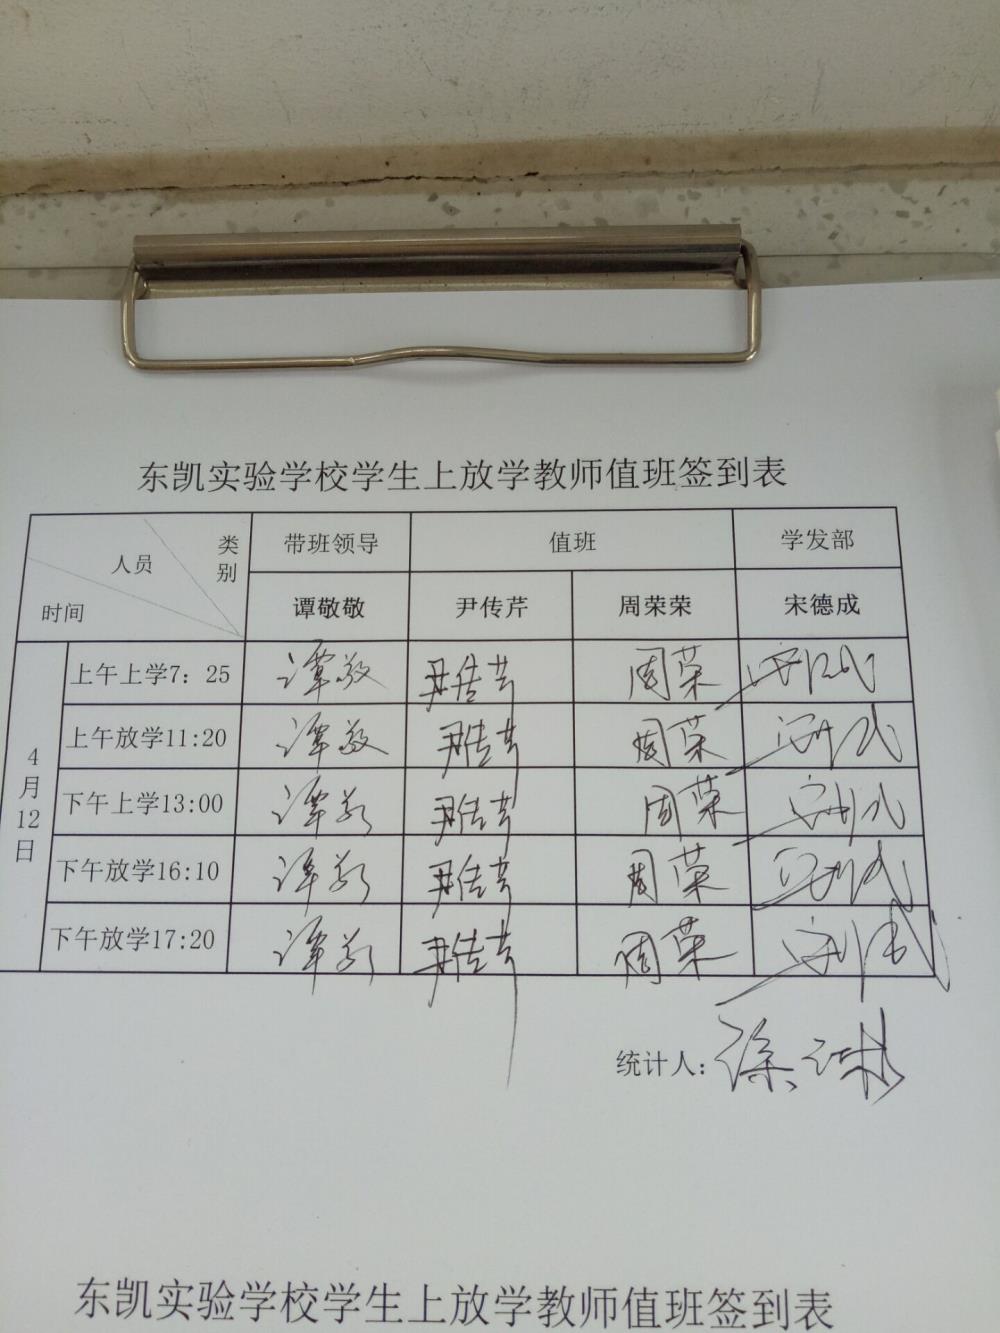 东凯实验学校学生上放学教师值班签到表
类别 人员 时间 带班领导 值班 学发部
谭敬敬 尹传芹 周荣荣 宋德成
4月12日
上午上学7：25 谭敬 尹传芹 周荣
上午放学11:20 谭敬 尹传芹 周荣
下午上学13:00 谭敬 尹传芹 周荣
下午放学16:10 谭敬 尹传芹 周荣
下午放学17:20 谭敬 尹传芹 周荣
统计人：徐
东凯实验学校学生上放学教师值班签到表